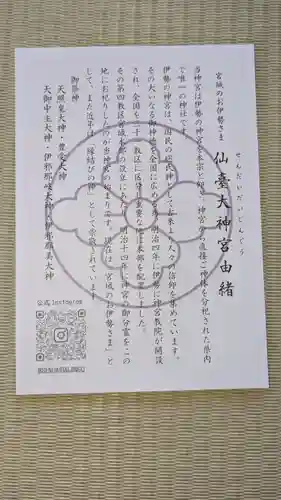 宮城のお伊勢さま
せんだいだいじんぐう
仙臺大神宮由緒
当神宮は伊勢の神宮を本宗と仰ぎ、神宮から直接ご神体を分祀された県内
で唯一の神社です。
伊勢の神宮は、国民の総氏神として古来より人々の信仰を集めています。
その大いなる御神徳を全国に広める為、明治四年に伊勢に神宮教院が開設
され、全国を三十一教区に区分し重要な地に本部を配置しました。
その第四教区宮城本部の設立にあたり、明治十四年に神宮の御分霊をこの
地にお祀りしたのが当神宮の始まりです。現在は「宮城のお伊勢さま」と
して、また近年は「縁結びの神」として崇敬されています。
御祭神
天照皇大神・豊受大神
天御中主大神・伊邪那岐大神・伊邪那美大神
公式 Instagram